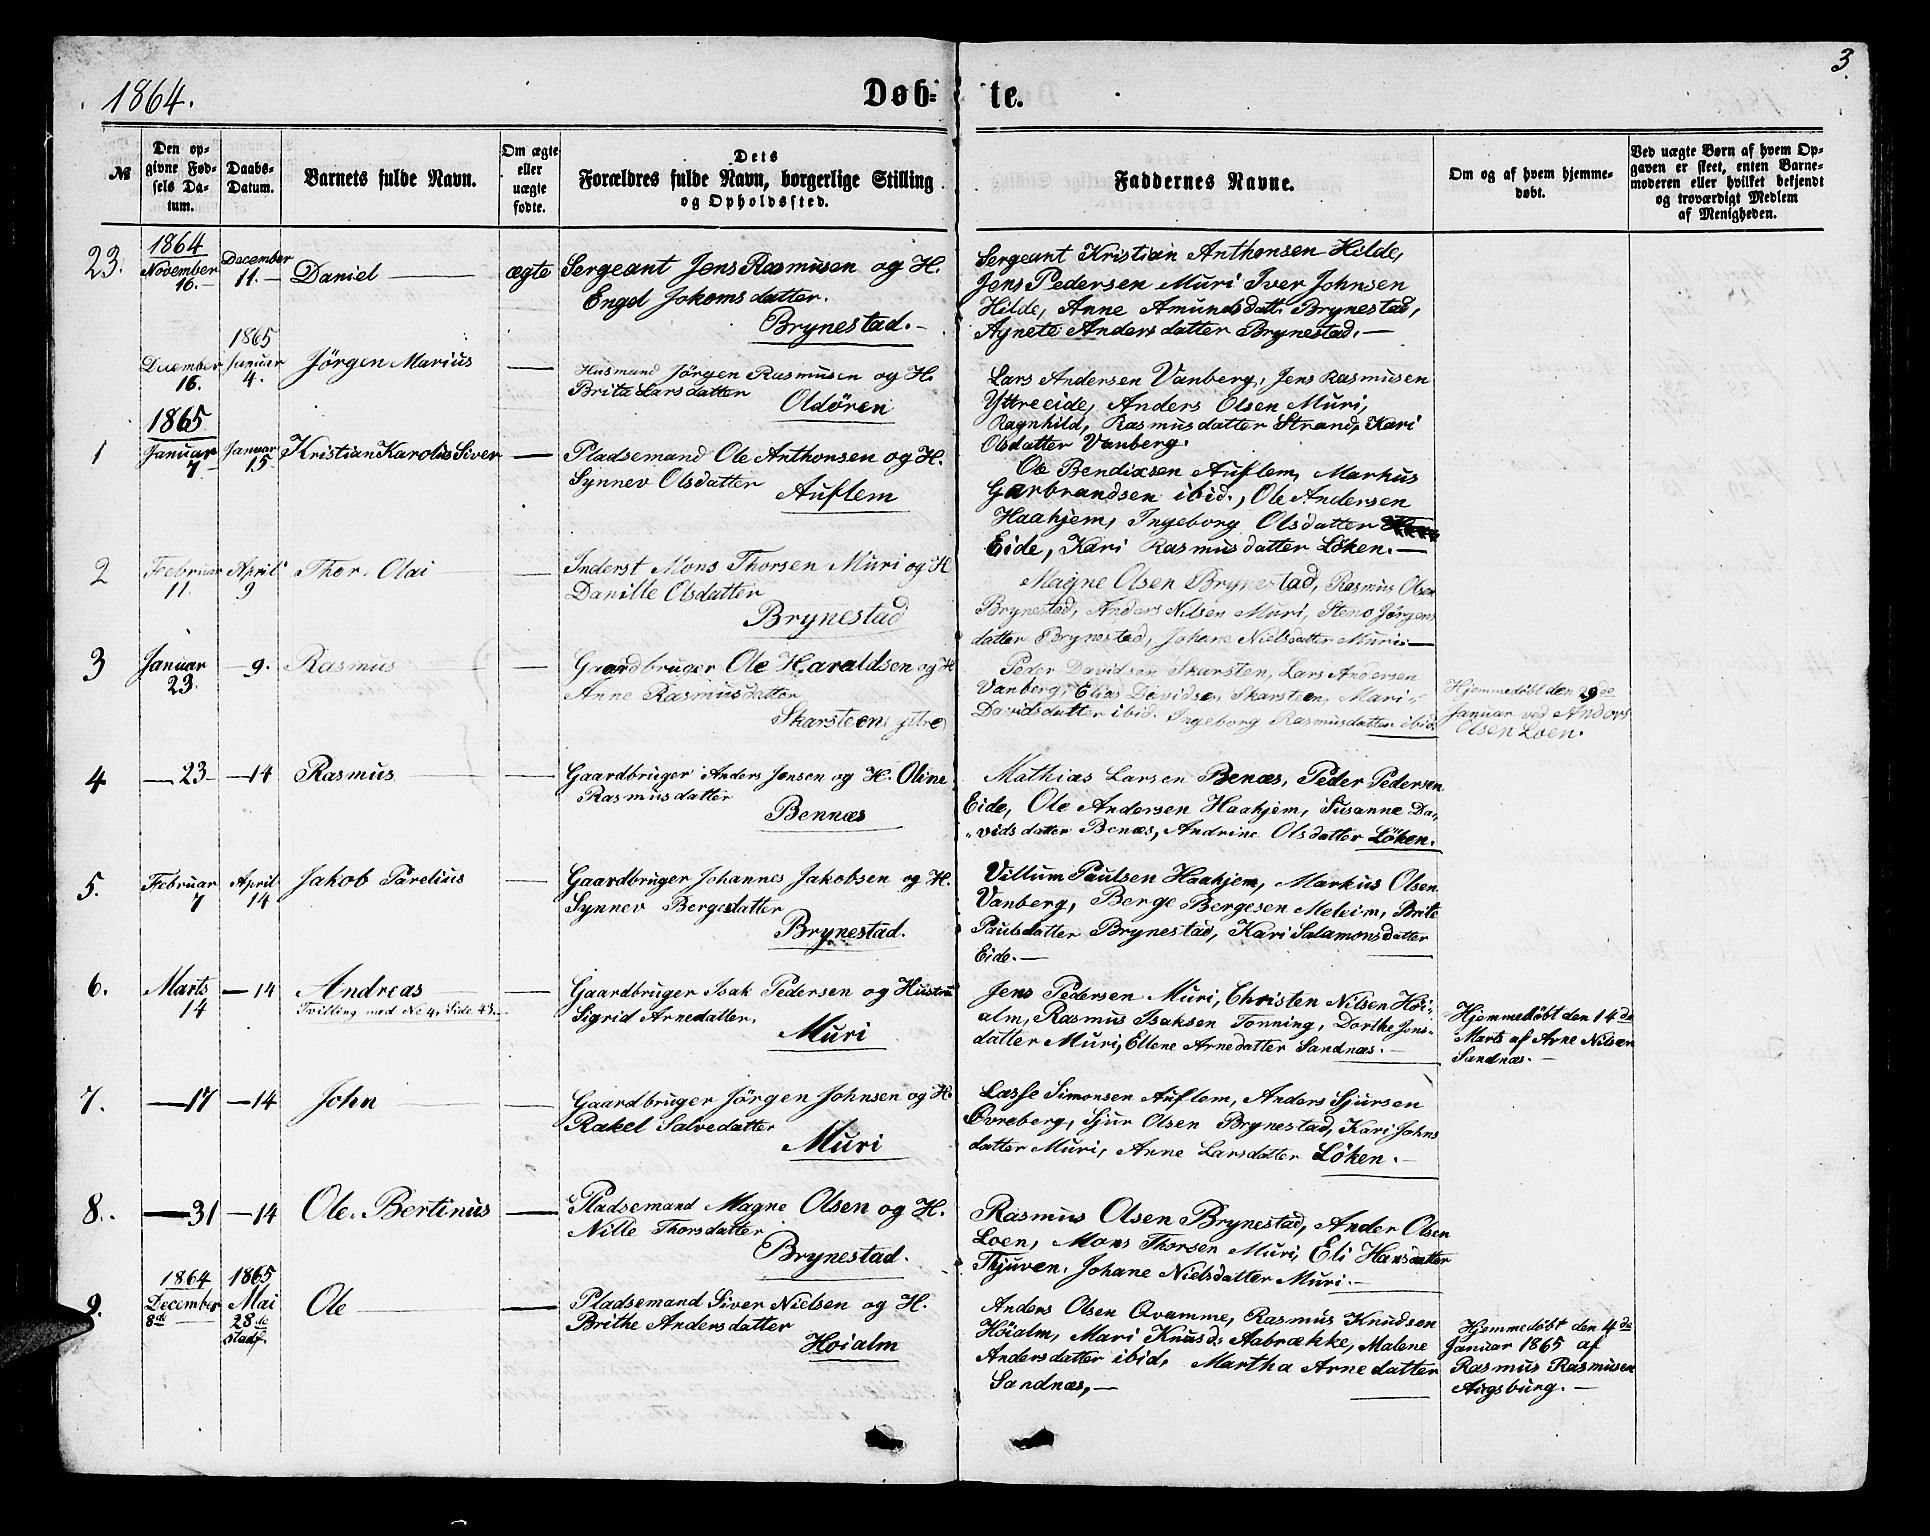 1864.
Døb-
te.
3
№
Den op-
givne Fød-
sels Da-
tum.
Daabs-
Datum.
Barnets fulde Navn.
Om ægte
eller
uægte
fødte.
Dets
Forældres fulde Navn, borgerlige Stilling
og Opholdssted.
Faddernes Navne.
Om og af hvem hjemme-
døbt.
Ved uægte Børn af hvem Op-
gaven er skeet, enten Barne-
moderen eller hvilket bekjendt
og troværdigt Medlem
af Menigheden.
23.
1864
November
16.
December
11.
Daniel
ægte
Sergeant Jens Rasmusen og H.
Engel Jokomsdatter.
Brynestad.
Sergeant Kristian Anthonsen Hilde,
Jens Pedersen Muri Iver Johnsen
Hilde, Anne Amundsdatt. Brynestad,
Agnete Andersdatter Brynestad.
December
16.
1865
Januar
4.
Jørgen Marius
Husmand Jørgen Rasmusen og H.
Brite Larsdatter
Oldören
Lars Andersen Vanberg, Jens Rasmusen
Yttreeide, Anders Olsen Muri,
Ragnhild, Rasmusdatter Strand, Kari
Olsdatter Vanberg.
1865
1
Januar
7
Januar
15
Kristian Karolus Siver
Pladsemand Ole Anthonsen og H.
Synnev Olsdatter
Auflem
Ole Bendixsen Auflem, Markus
Garbrandsen ibid., Ole Andersen
Haahjem, Ingeborg Olsdatter
Eide, Kari Rasmusdatter Löken.
2
Februar
11.
April
9
Thor. Olai
Inderst Mons Thorsen Muri og H
Danille Olsdatter
Brynestad
Magne Olsen Brynestad, Rasmus Olsen
Brynestad, Anders Nilsen Muri, Steno Jørgens
datter Brynestad, Johane Nielsdatter Muri.
3
Januar
23.
9.
Rasmus
Gaardbruger Ole Haraldsen og H
Anne Rasmusdatter
Skarsteen ytre
Peder Davidsen Skarsten, Lars Andersen
Vanberg, Elias Davidsen Skarsten, Mari
Davidsdatter ibid. Ingeborg Rasmusdatter ibid.
Hjemmedøbt den 29de
Januar ved Anders
Olsen Loen.
4
23
14
Rasmus
Gaardbruger Anders Jensen og H. Oline
Rasmusdatter
Bennæs
Mathias Larsen Benæs, Peder Pedersen
Eide, Ole Andersen Haahjem, Susanne Da-
vidsdatter Benæs, Andrine Olsdatter Löken.
5.
Februar
7
April
14
Jakob Parelius
Gaardbruger Johannes Jakobsen og H.
Synnev Bergesdatter
Brynestad.
Villum Paulsen Haahjem, Markus Olsen
Vanberg, Berge Bergesen Meleim, Brite
Paulsdatter Brynestad, Kari Salamonsdatter
Eide.
6.
Marts
14
14
Andreas
Tvilling med No 4, Side 43.
Gaardbruger Isak Pedersen og Hustru
Sigrid Arnedatter.
Muri
Jens Pedersen Muri, Christen Nilsen Höi-
alm, Rasmus Isaksen Tonning, Dorthe Jens-
datter Muri, Ellene Arnedatter Sandnæs.
Hjemmedöbt den 14de
Marts af Arne Nilsen
Sandnæs.
7.
17
14
John
Gaardbruger Jørgen Johnsen og H.
Rakel Salvedatter
Muri
Lasse Simonsen Auflem, Anders Sjursen
Øvreberg, Sjur Olsen Brynestad, Kari Johns
datter Muri, Anne Larsdatter Löken.
8.
31
14
Ole. Bertinus
Pladsemand Magne Olsen og H.
Nille Thorsdatter
Brynestad.
Rasmus Olsen Brynestad, Ander Olsen
Loen, Mons Thorsen Muri, Eli Hansdatter
Thjuven. Johane Nielsdatter Muri.
9.
1864
December
8de
1865
Mai
28de
stadf.
Ole
Pladsemand Siver Nielsen og H.
Brithe Andersdatter
Höialm
Anders Olsen Qvamme, Rasmus Knudsen
Höialm, Mari Knusd. Aabrække, Malene
Andersdatter ibid, Martha Arnedatter
Sandnæs,
Hjemmedöbt den 4de
Januar 1865 af
Rasmus Rasmusen
Augsburg.